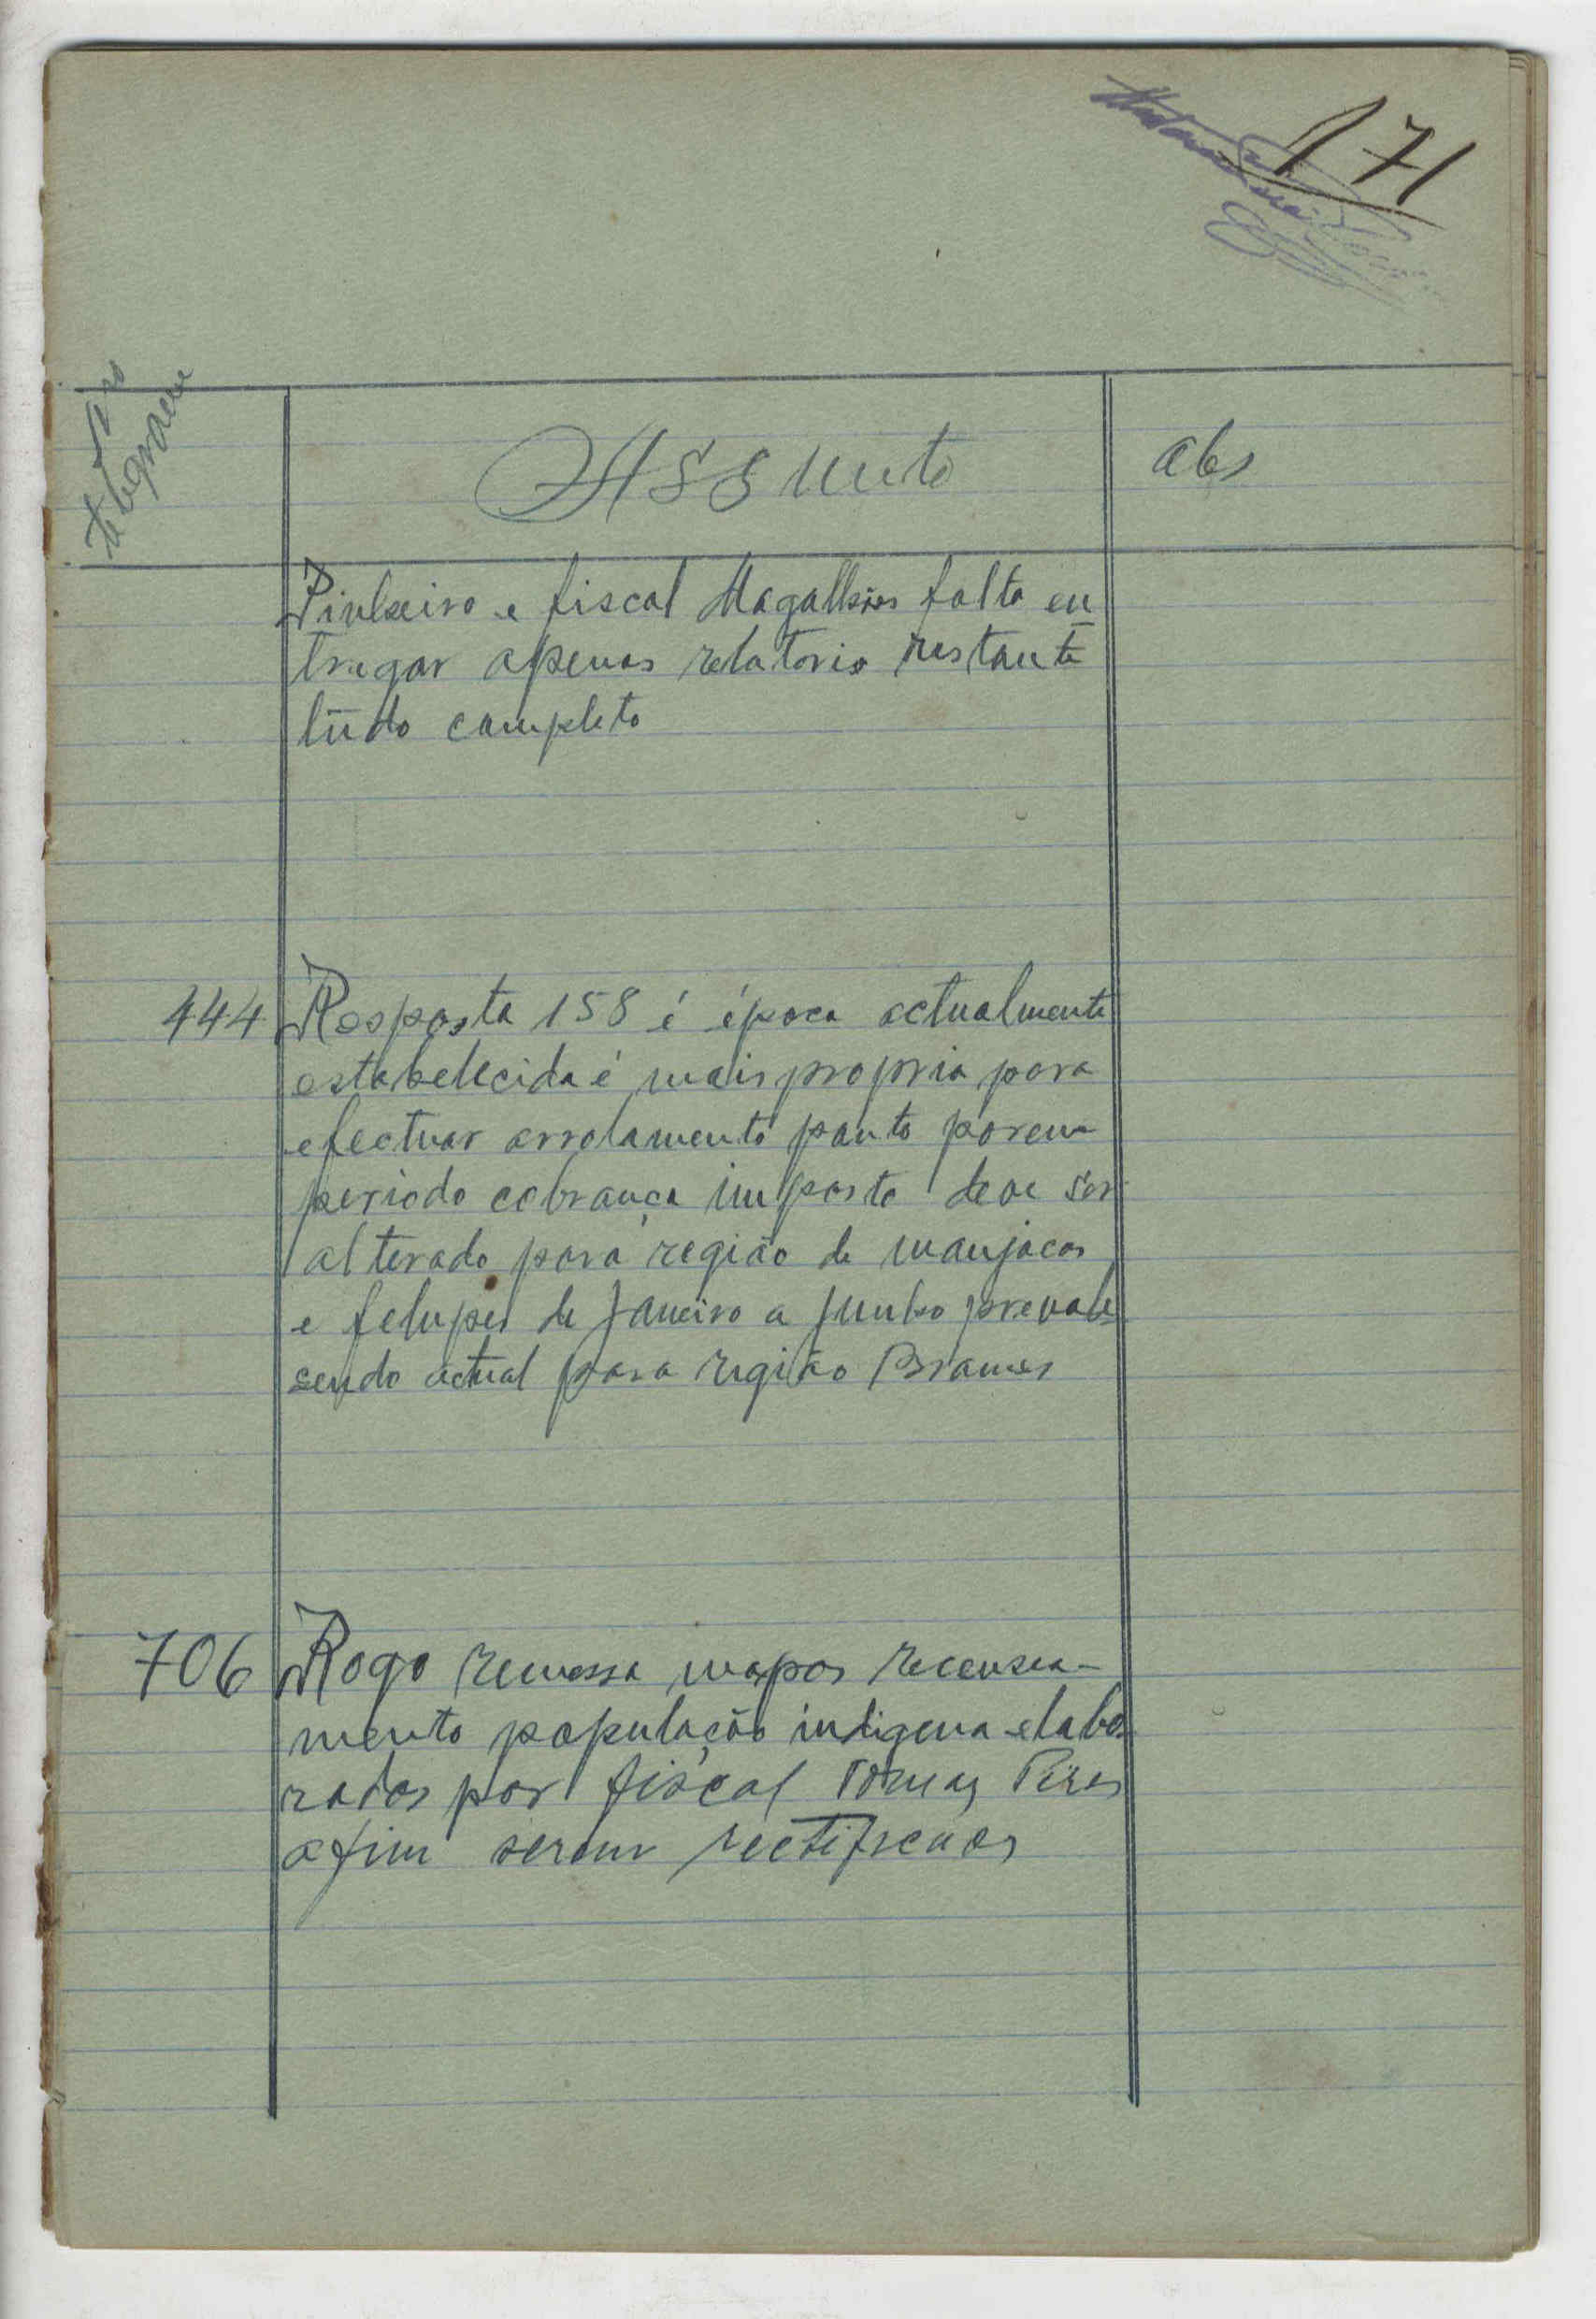 171
Nº telegrama
Assunto
Obs
Pinheiro e fiscal Magalhães falta en
tregar apenas relatorio restante
tudo completo
444 Resposta 158 é época actualmente
estabelecida é mais propria para
efectuar arrolamento ponto porem
periodo cobrança imposto deve ser
alterado para região de manjacos
e felupes de Janeiro a Junho prevale
sendo actual para região Brames
706 Rogo remessa mapas recensea-
mento população indigena elabo
rados por fiscal Tomaz Peres
afim serem